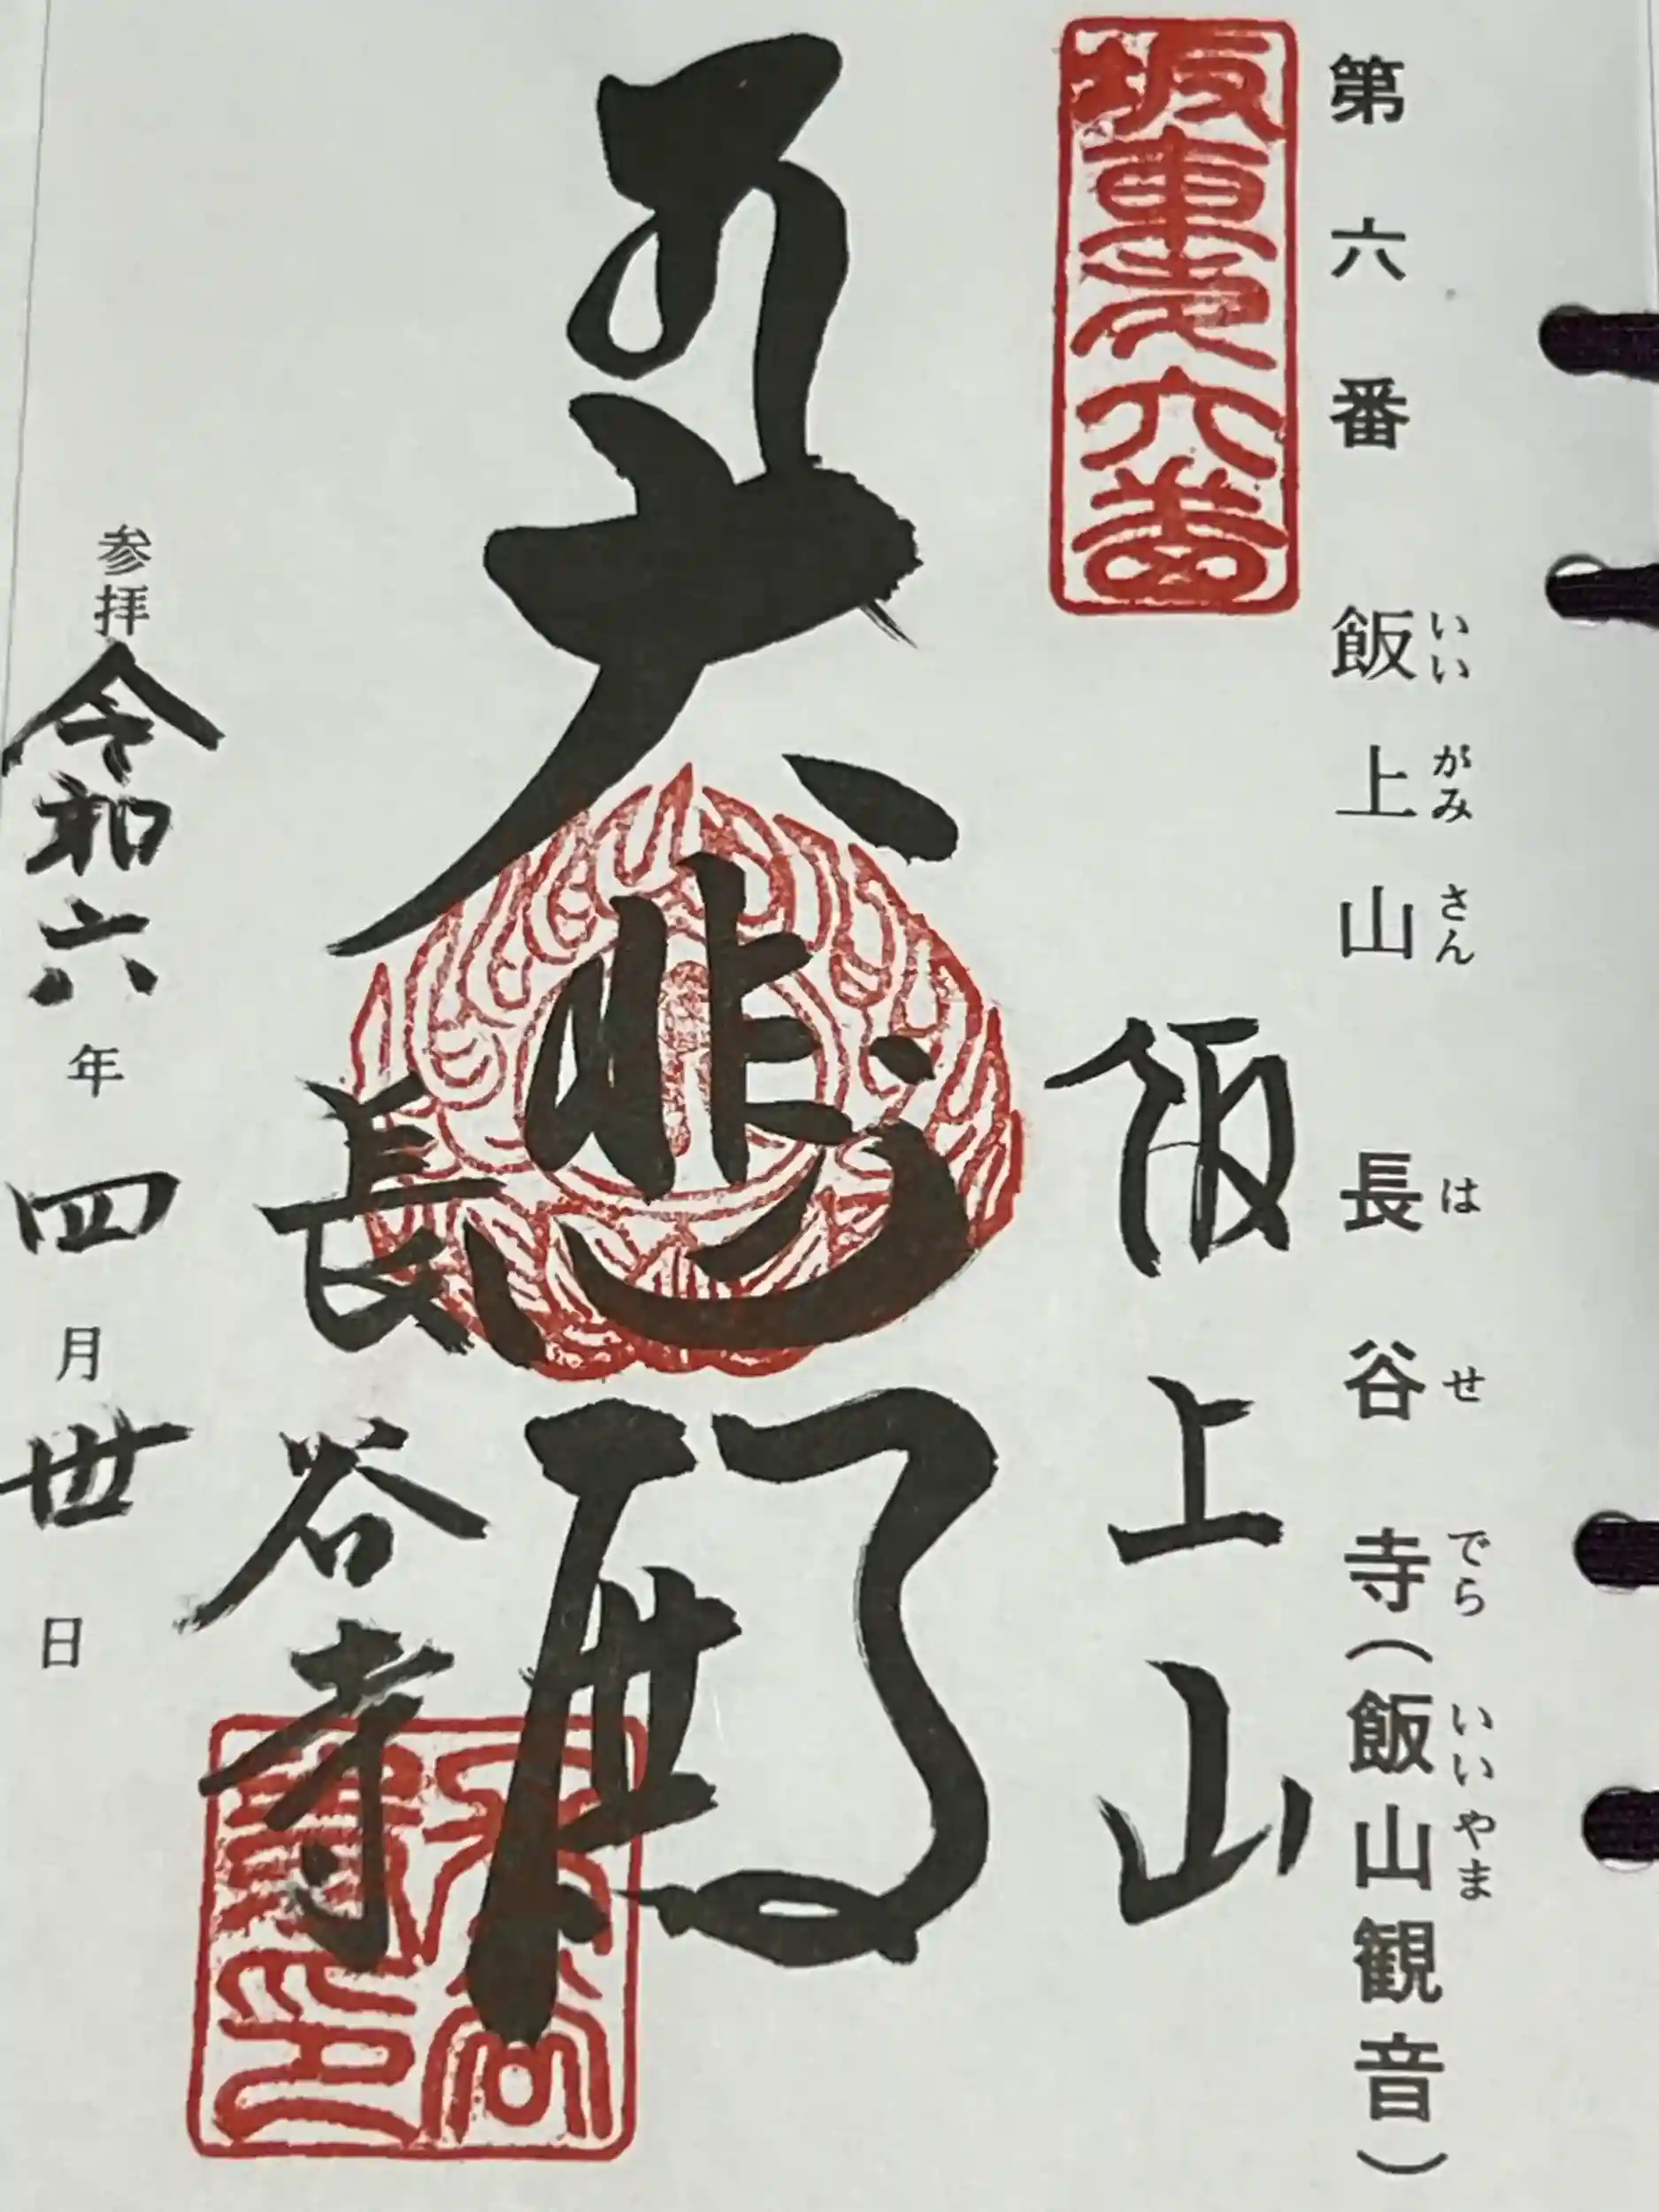 第六番 飯上山 長谷寺(飯山観音)
いいがみさん はせでら いいやま
坂東第六番
飯上山
大悲殿
長谷寺
参拝 令和六年四月丗日